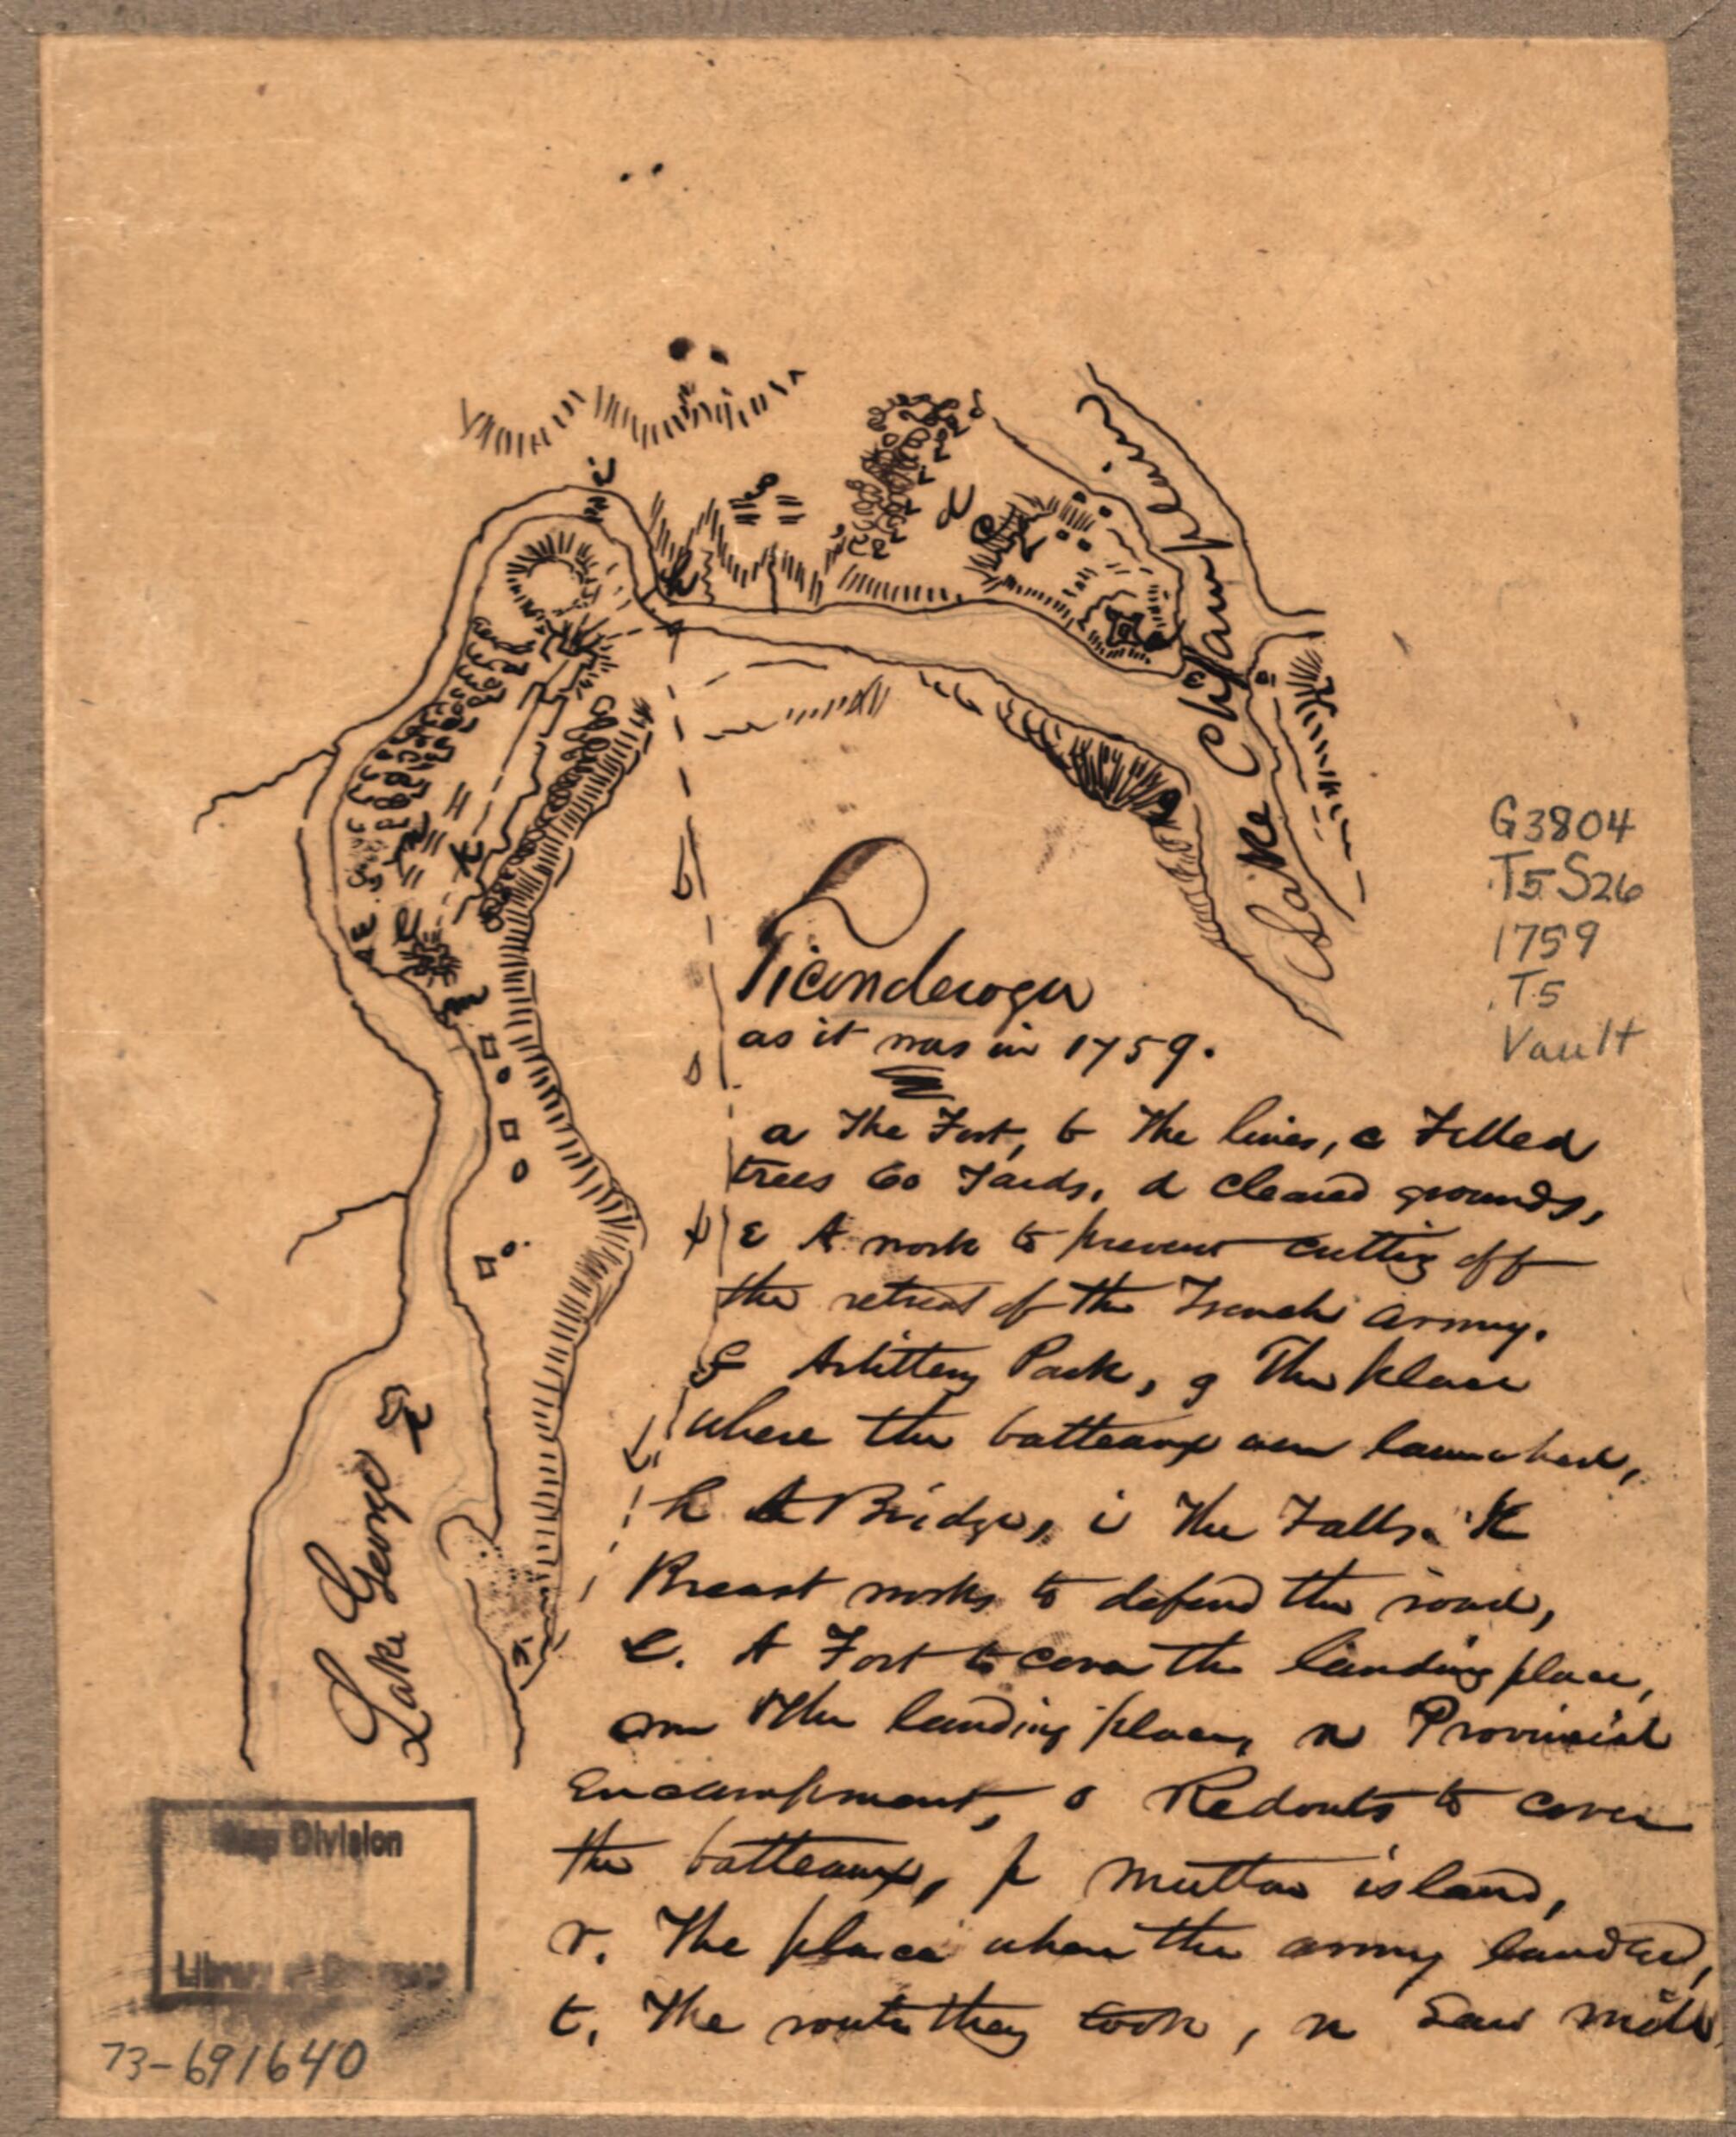 Lake Champlain
Lake George
G3804
.T5S26
1759
.T5
Vault
Ticonderoga
as it was in 1759.
a The Fort, b The lines, c Felled
trees 60 Yards, d cleared grounds,
E A work to prevent cutting off
the retreat of the French army.
f Artillery Park, g The place
where the batteaux were launched,
h A Bridge, i The Falls. K
Breast works to defend the road,
l. A Fort to cover the landing place,
m The landing place, n Provincial
Encampment, o Redouts to cover
the batteaux, p Mutton island,
r. The place where the army landed,
t. The route they took, n Saw mill
Map Division
Library of Congress
73-691640